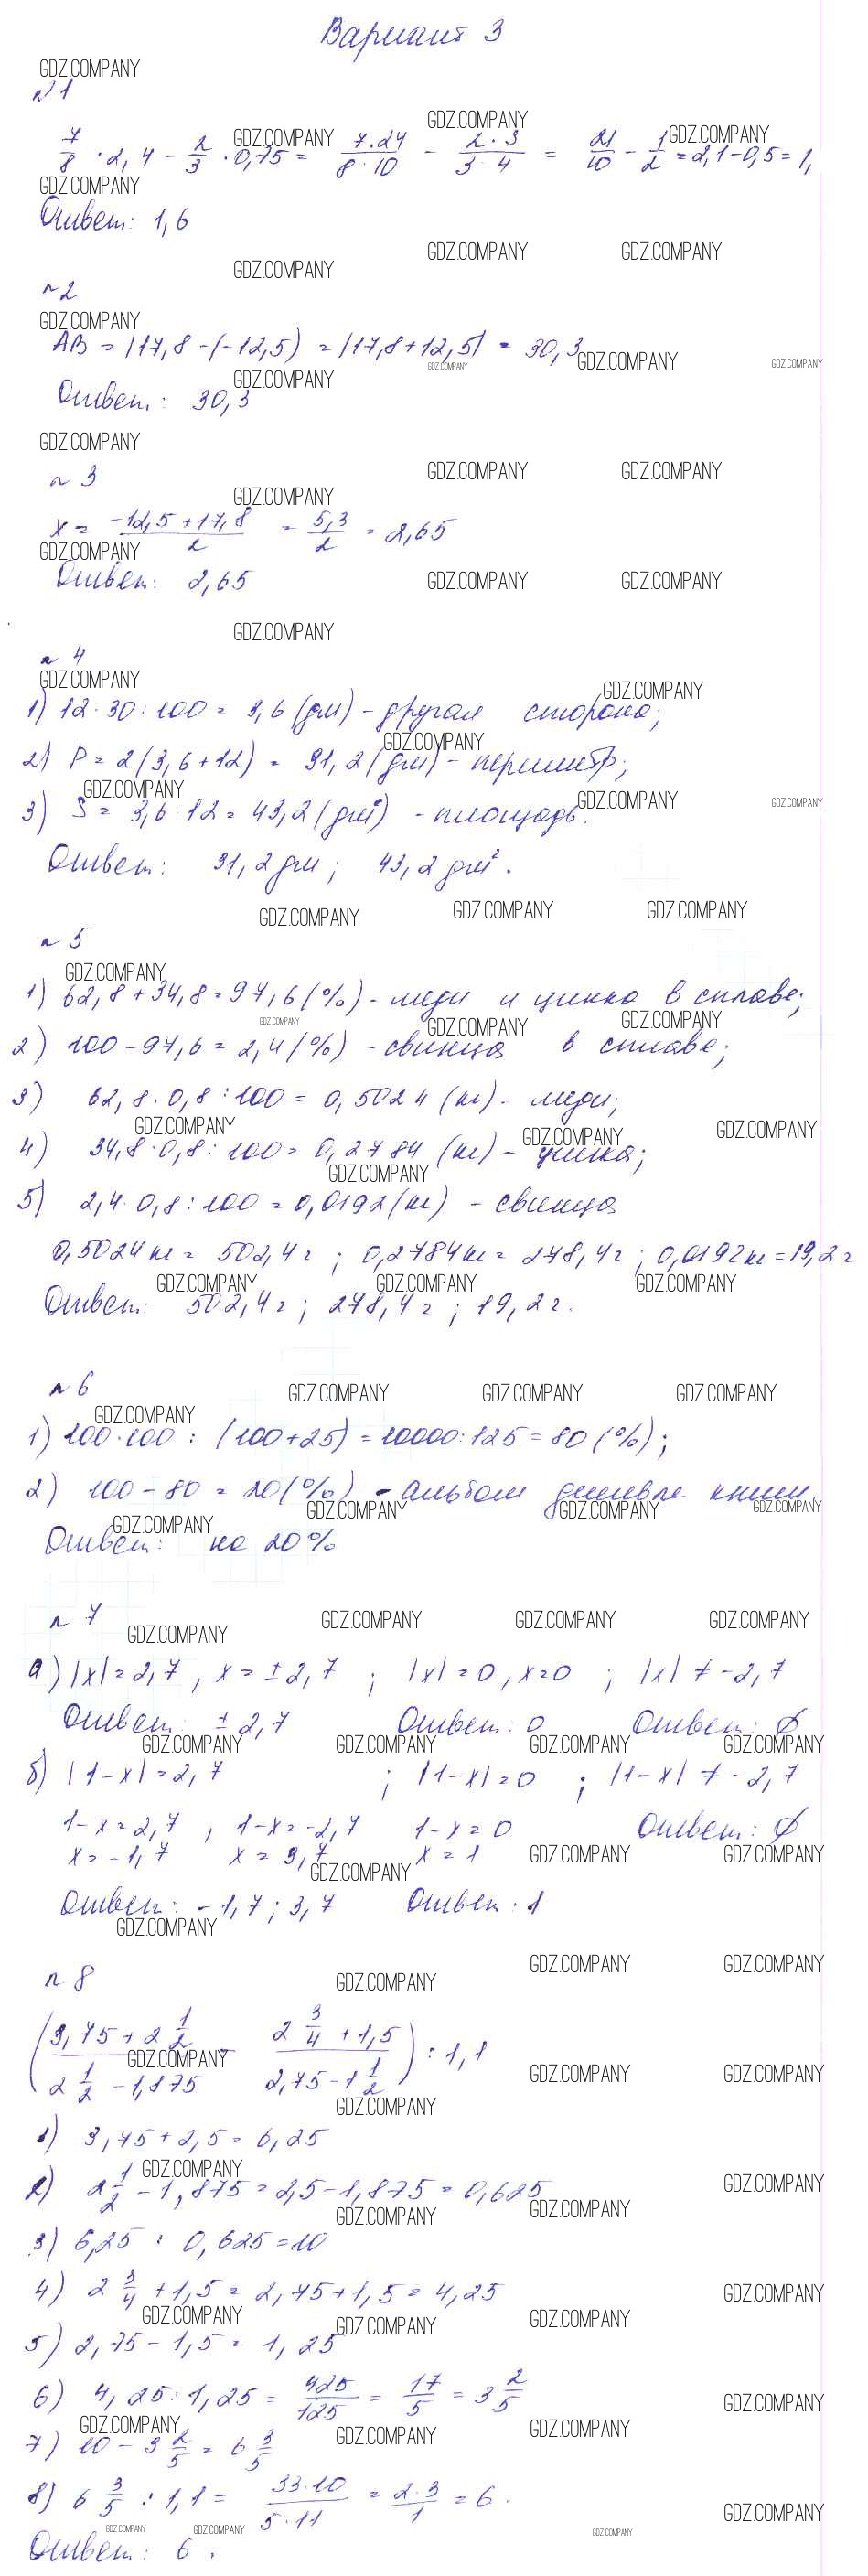 Вариант 3
GDZ.COMPANY
№1
7/8 · 2,4 - 2/3 · 0,75 = 7·24/8·10 - 2·3/3·4 = 21/10 - 1/2 = 2,1-0,5 = 1,
Ответ: 1,6
№2
AB = |17,8-(-12,5) = |17,8+12,5| = 30,3
Ответ: 30,3
№3
x = -12,5+17,8/2 = 5,3/2 = 2,65
Ответ: 2,65
№4
1) 12·30:100 = 3,6 (дм) - другая сторона;
2) P = 2(3,6+12) = 31,2 (дм) - периметр;
3) S = 3,6·12 = 43,2 (дм²) - площадь.
Ответ: 31,2 дм; 43,2 дм².
№5
1) 62,8+34,8=97,6 (%) - меди и цинка в сплаве;
2) 100-97,6 = 2,4 (%) - свинца в сплаве;
3) 62,8·0,8:100 = 0,5024 (кг) - меди;
4) 34,8·0,8:100 = 0,2784 (кг) - цинка;
5) 2,4·0,8:100 = 0,0192 (кг) - свинца
0,5024 кг = 502,4 г; 0,2784 кг = 278,4 г; 0,0192 кг = 19,2 г
Ответ: 502,4 г; 278,4 г; 19,2 г.
№6
1) 100·100 : (100+25) = 10000:125 = 80 (%);
2) 100-80 = 20 (%) - альбом дешевле книги.
Ответ: на 20%
№7
а) |x| = 2,7, x = ±2,7; |x| = 0, x=0; |x| ≠ -2,7
Ответ: ±2,7 Ответ: 0 Ответ: ∅
б) |1-x| = 2,7; |1-x| = 0; |1-x| ≠ -2,7
1-x = 2,7, 1-x = -2,7 1-x = 0 Ответ: ∅
x = -1,7 x = 3,7 x = 1
Ответ: -1,7; 3,7 Ответ: 1
№8
(3,75+2 1/2 / 2 1/2 -1,875 - 2 3/4 +1,5 / 2,75-1 1/2) : 1,1
1) 3,75+2,5 = 6,25
2) 2 1/2 - 1,875 = 2,5-1,875 = 0,625
3) 6,25 : 0,625 = 10
4) 2 3/4 + 1,5 = 2,75+1,5 = 4,25
5) 2,75-1,5 = 1,25
6) 4,25:1,25 = 425/125 = 17/5 = 3 2/5
7) 10 - 3 2/5 = 6 3/5
8) 6 3/5 : 1,1 = 33·10/5·11 = 2·3/1 = 6.
Ответ: 6.